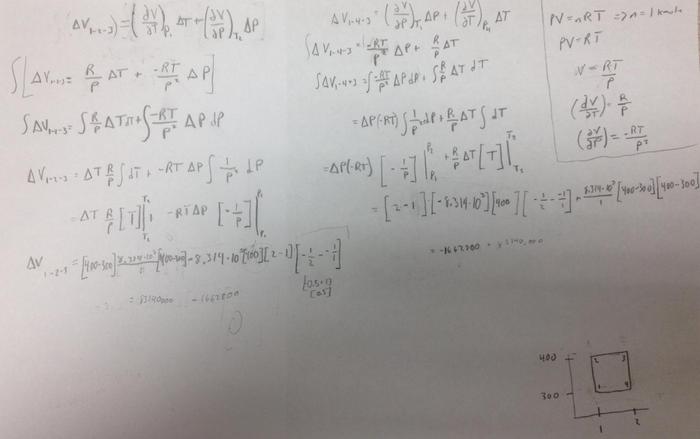 ΔV₁₋₂₋₃) = (∂V/∂T)_P₁ ΔT + (∂V/∂P)_T₂ ΔP
∫[ΔV₁₋₂₋₃ = R/P ΔT + -RT/P² ΔP]
∫ΔV₁₋₂₋₃ = ∫R/P ΔT dT + ∫-RT/P² ΔP dP
ΔV₁₋₂₋₃ = ΔT R/P ∫dT + -RT ΔP ∫1/P² dP
= ΔT R/P [T]|T₂ T₁ -RTΔP [-1/P]|P₂ P₁
ΔV₁₋₂₋₃ = [400-300] 8.314·10³/1 [400-300] - 8.314·10³[400][2-1][-1/2 - -1/1]
[-0.5+1]
[0.5]
= 83140000 -1662800
ΔV₁₋₄₋₃ = (∂V/∂P)_T₁ ΔP + (∂V/∂T)_P₄ ΔT
∫ΔV₁₋₄₋₃ = -RT/P² ΔP + R/P ΔT
∫ΔV₁₋₄₋₃ = ∫-RT/P² ΔP dP + ∫R/P ΔT dT
= ΔP(-RT)∫1/P² dP + R/P ΔT ∫dT
= ΔP(-RT) [-1/P]|P₂ P₁ + R/P ΔT [T]|T₃ T₂
= [2-1]·[-8.314·10³][400] [-1/2 - -1/1] + 8.314·10³/1 [400-300][400-300]
= -1662800 + 83140,000
PV = nRT => n = 1 kmole
PV = RT
V = RT/P
(∂V/∂T) = R/P
(∂V/∂P) = -RT/P²
400
2 3
300
1 4
1 2